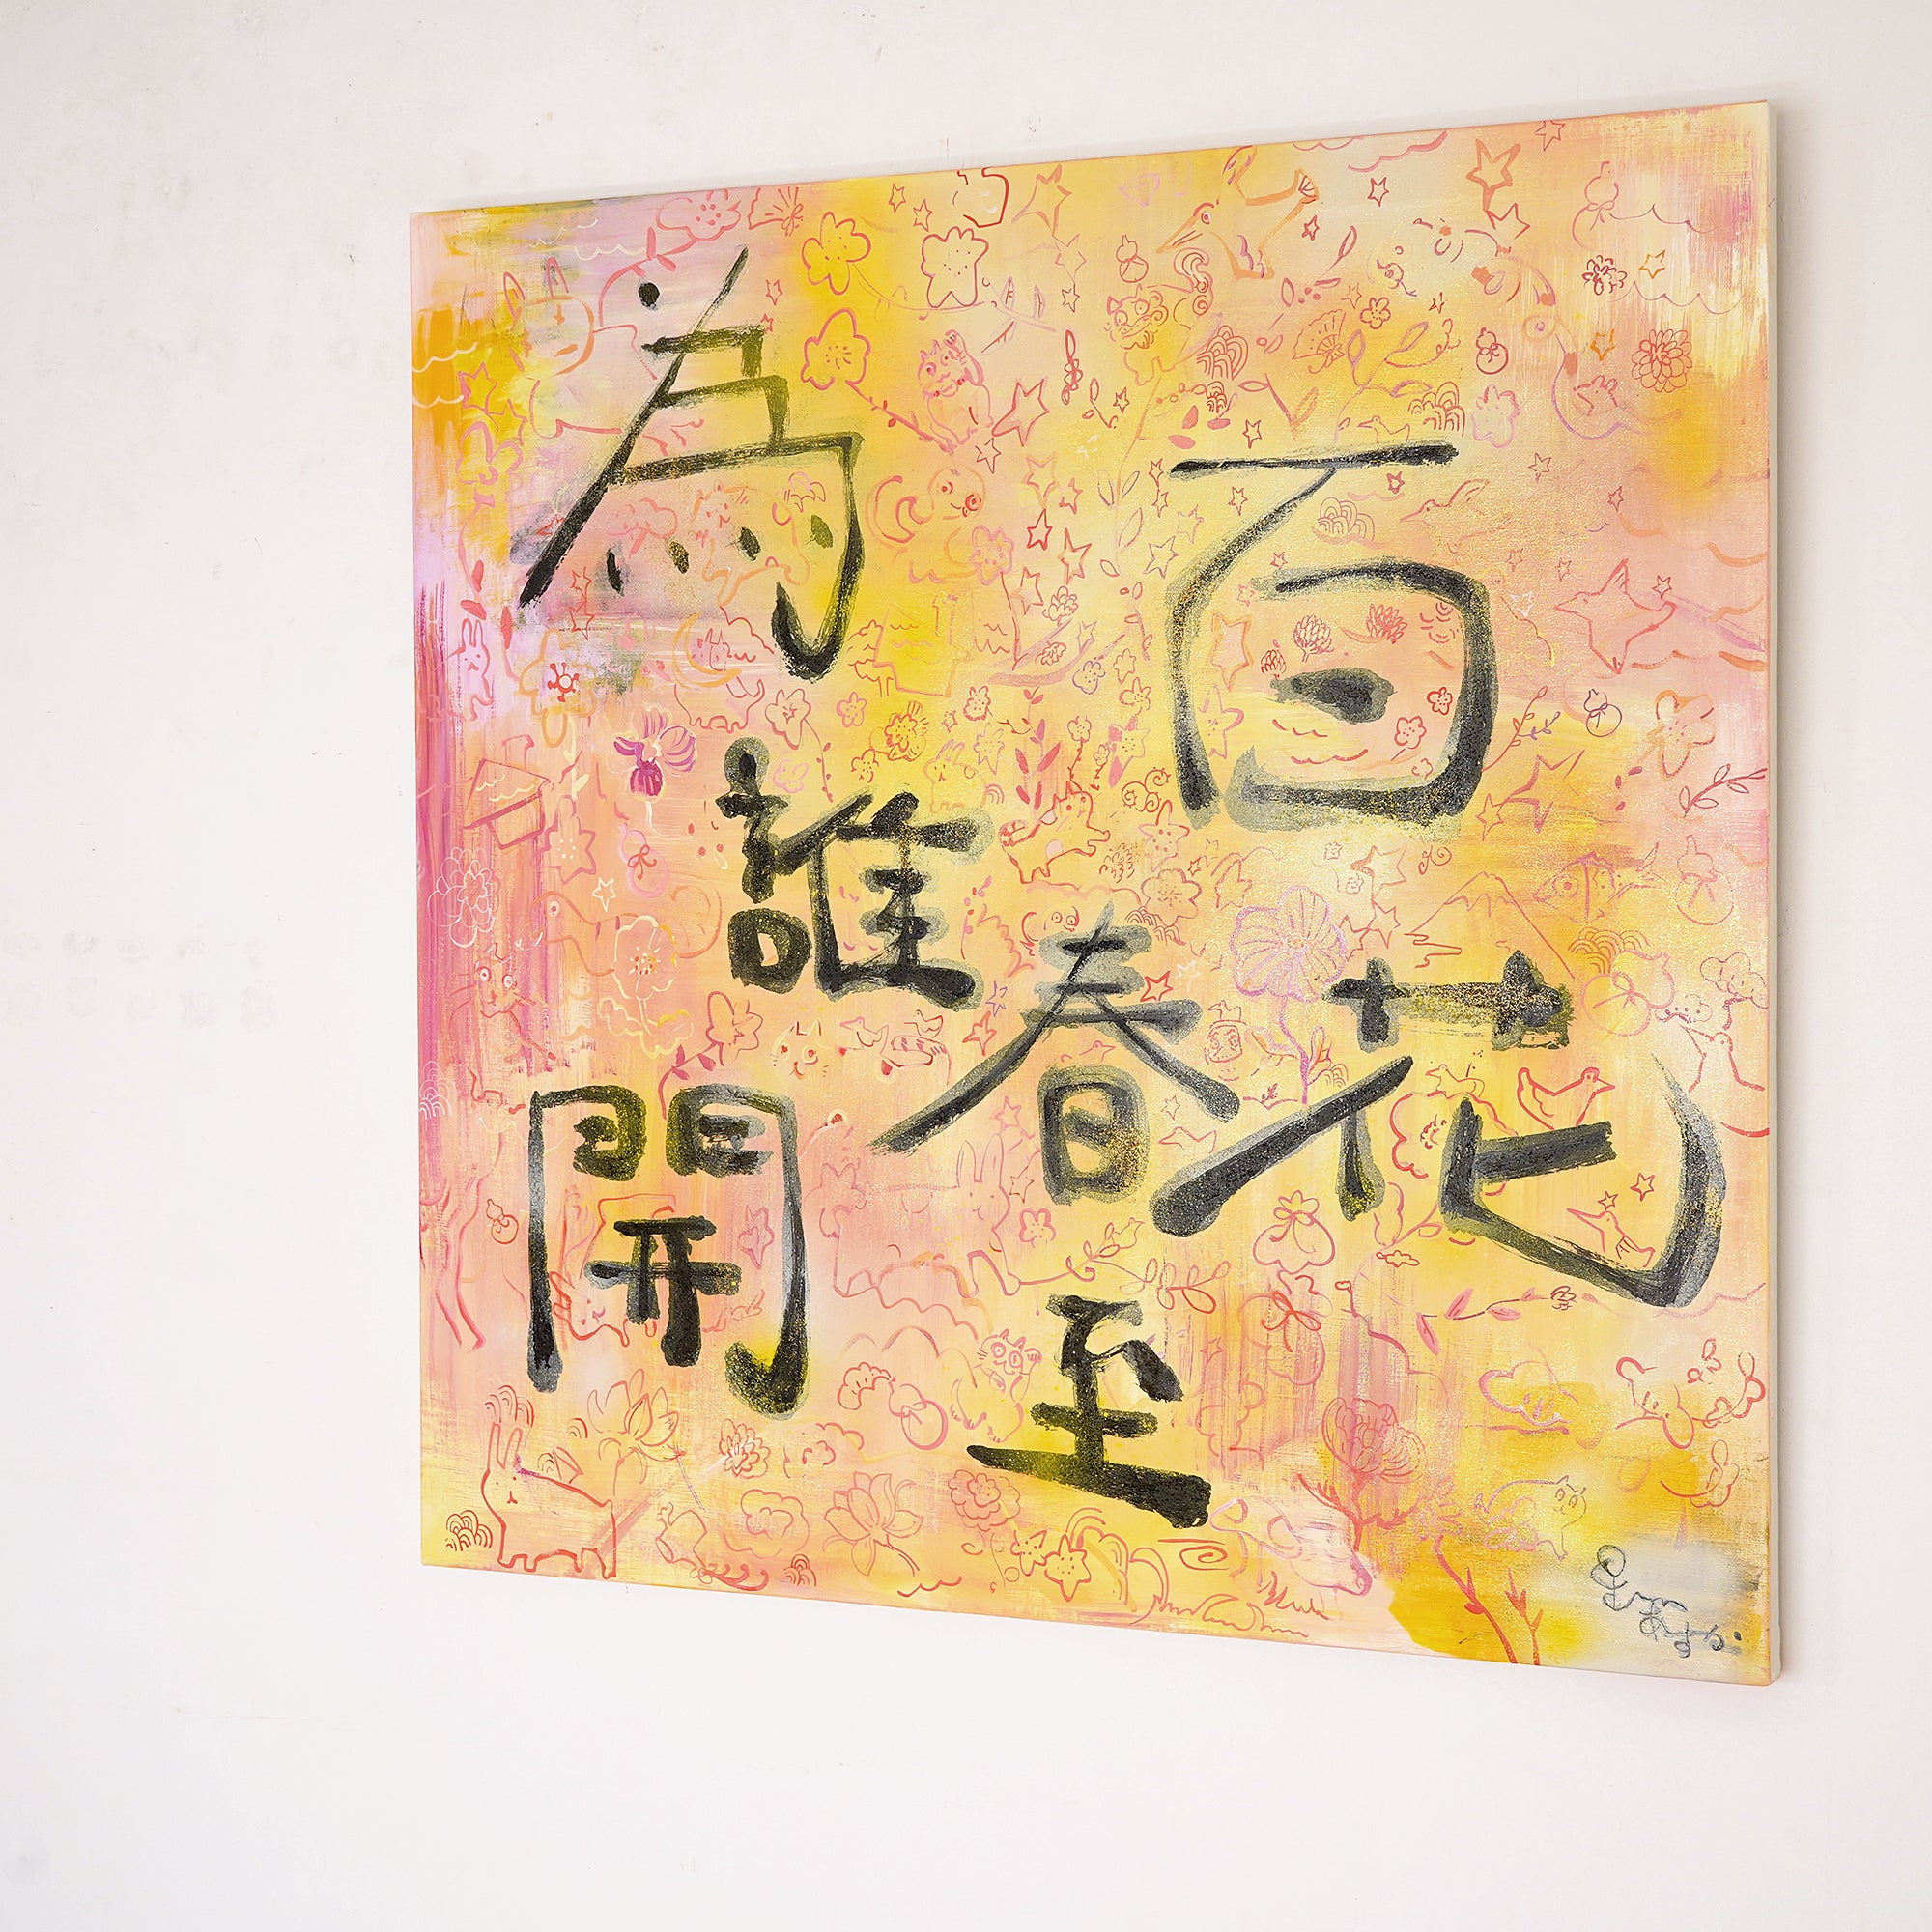 百花
春至
為誰開